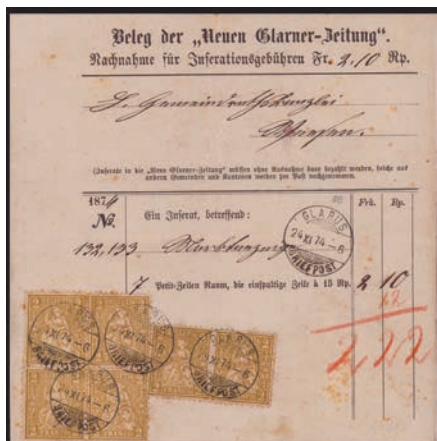 Beleg der „Neuen Glarner-Zeitung“.
Nachnahme für Inserationsgebühren Fr. 2.10 Rp.
(Inserate in die „Neue Glarner-Zeitung“ müssen ohne Ausnahme baar bezahlt werden, solche aus
andern Gemeinden und Kantonen werden per Post nachgenommen.
1874
No.
Ein Inserat, betreffend:
Frk. Rp.
132,133
7 Petit-Zeilen Raum, die einspaltige Zeile à 15 Rp. 2 10
12
2 22
GLARUS
24 XI 74 - 6
FILEPOST